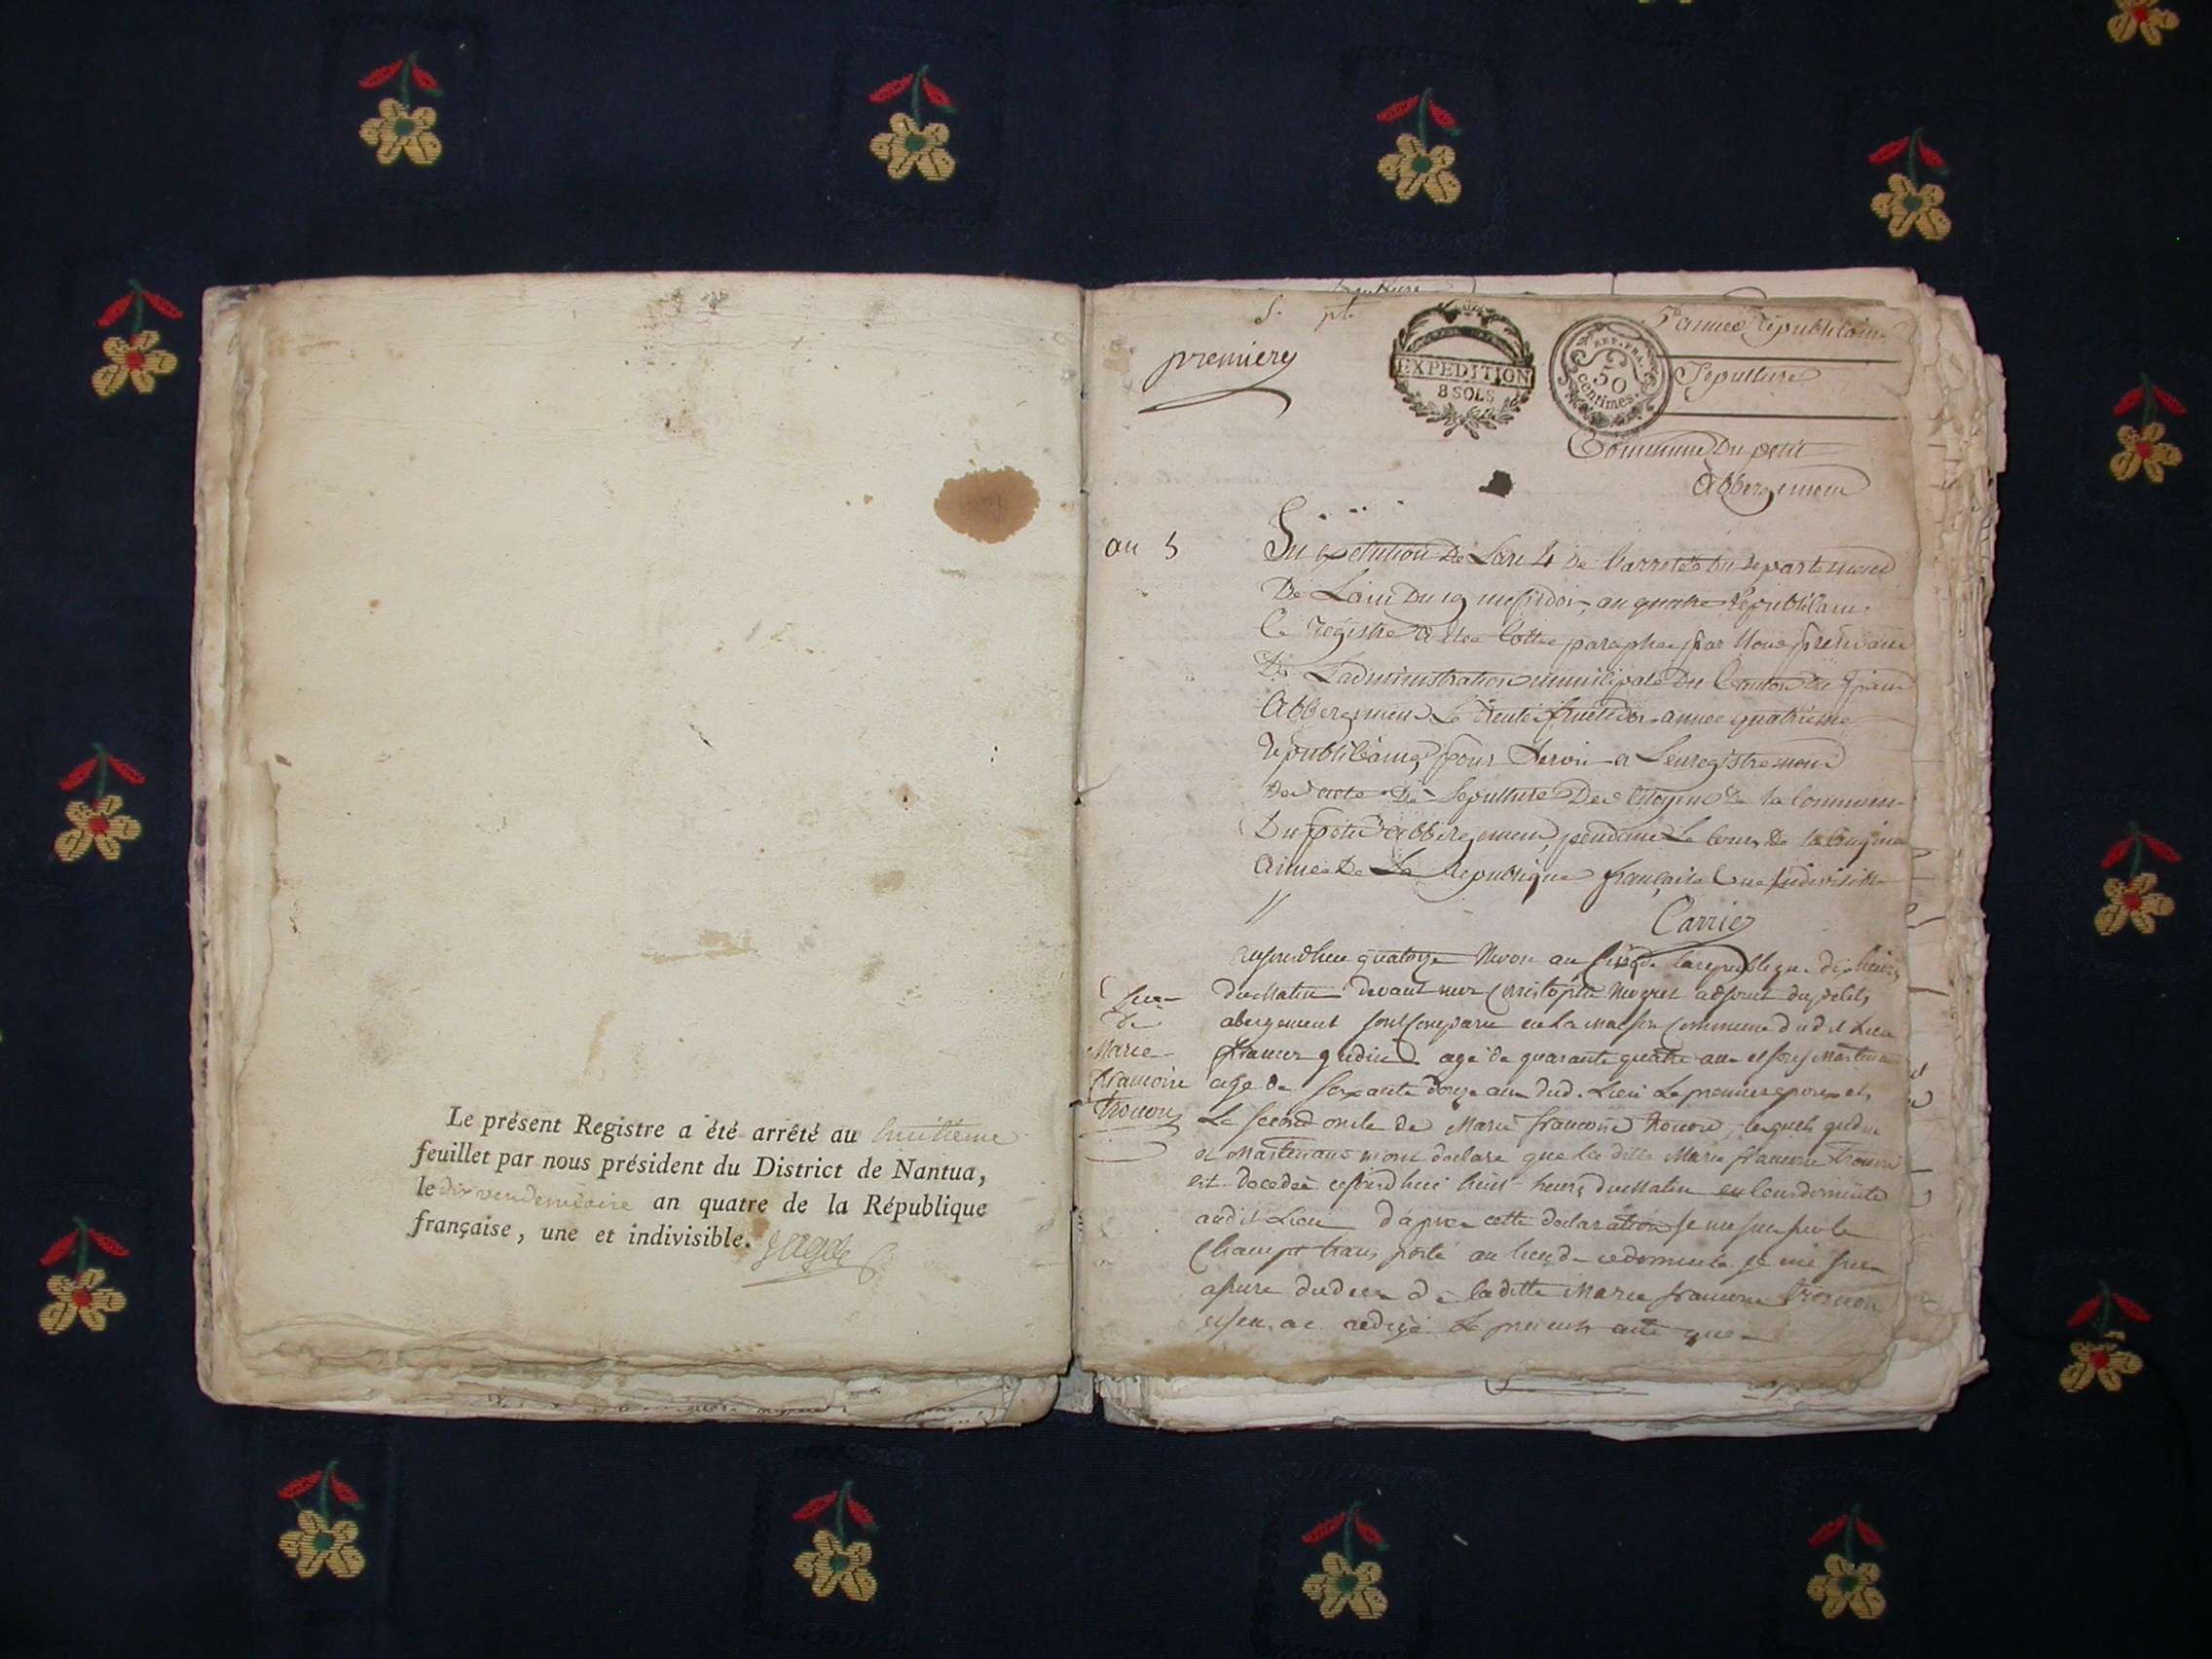 Le présent Registre a été arrêté au huitieme
feuillet par nous président du District de Nantua,
le dix vendemiaire an quatre de la République
française, une et indivisible.
premier
EXPEDITION
8 SOLS
REP. FRA.
50
centimes
5e année Republicaine
Sepulture
Commune Du petit
Abbergement
an 5
En execution De L'art 4 De l'arrêté du departement
De L'ain Du 19 messidor, an quatre republicain
Ce registre a été cotté paraphé par Nous president
De L'administration municipale Du Canton du grand
Abbergement Le trente fructidor année quatrieme
republicaine, pour servir a L'enregistrement
des actes De Sepulture Des citoyens De la Commune
Du petit abbergement, pendant Le cours De la cinquieme
année De La Republique française une indivisible
Carrier
aujourdhui quatorze Nivose an cinq de la republique dix heures
du Matin devant moy Christophe adjoint du petit
abergement sont comparu en la maison Commune dudit Lieu
agé de quarante quatre ans et
age de soixante douze ans dud. Lieu Le premier epoux et
Le second oncle de Marie francoise lequels
et mont declare que la ditte Marie francoise
est decedée aujourdhui huit heures du Matin en leur domicile
audit Lieu d'apres cette declaration je me suis sur le
Champ transporté au lieu de ce domicile je me suis
assure du deces de laditte Marie francoise
et jen ai redigé Le present acte que
de
Marie
francoise